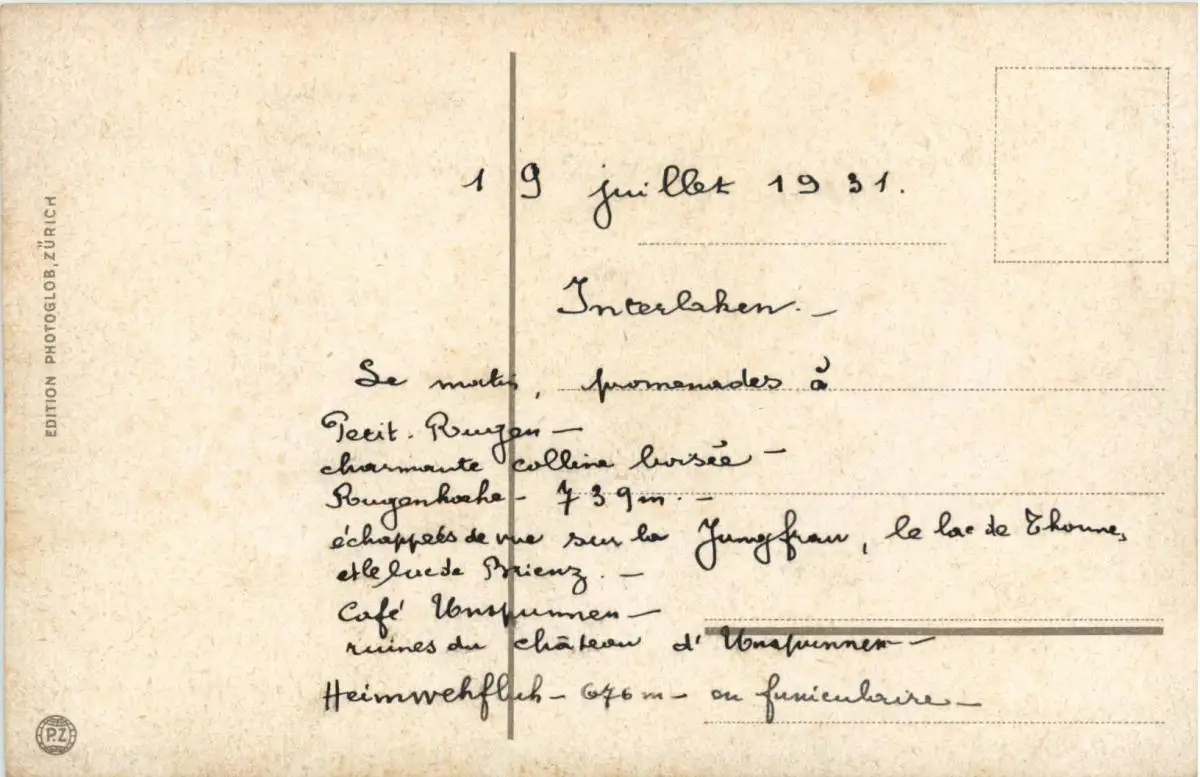 19 juillet 1931.
Interlaken. —
Le matin, promenades à
Petit-Rugen —
charmante colline boisée —
Rugenhoehe - 739m. —
échappées de vue sur la Jungfrau, le lac de Thoune,
et le lac de Brienz. —
Café Unspunnen —
ruines du château d'Unspunnen —
Heimwehfluh — 676m — en funiculaire —
EDITION PHOTOGLOB, ZÜRICH
P.Z